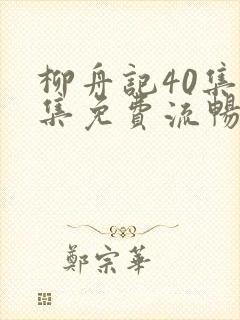 柳舟記40集
集免費流暢
鄭宗華